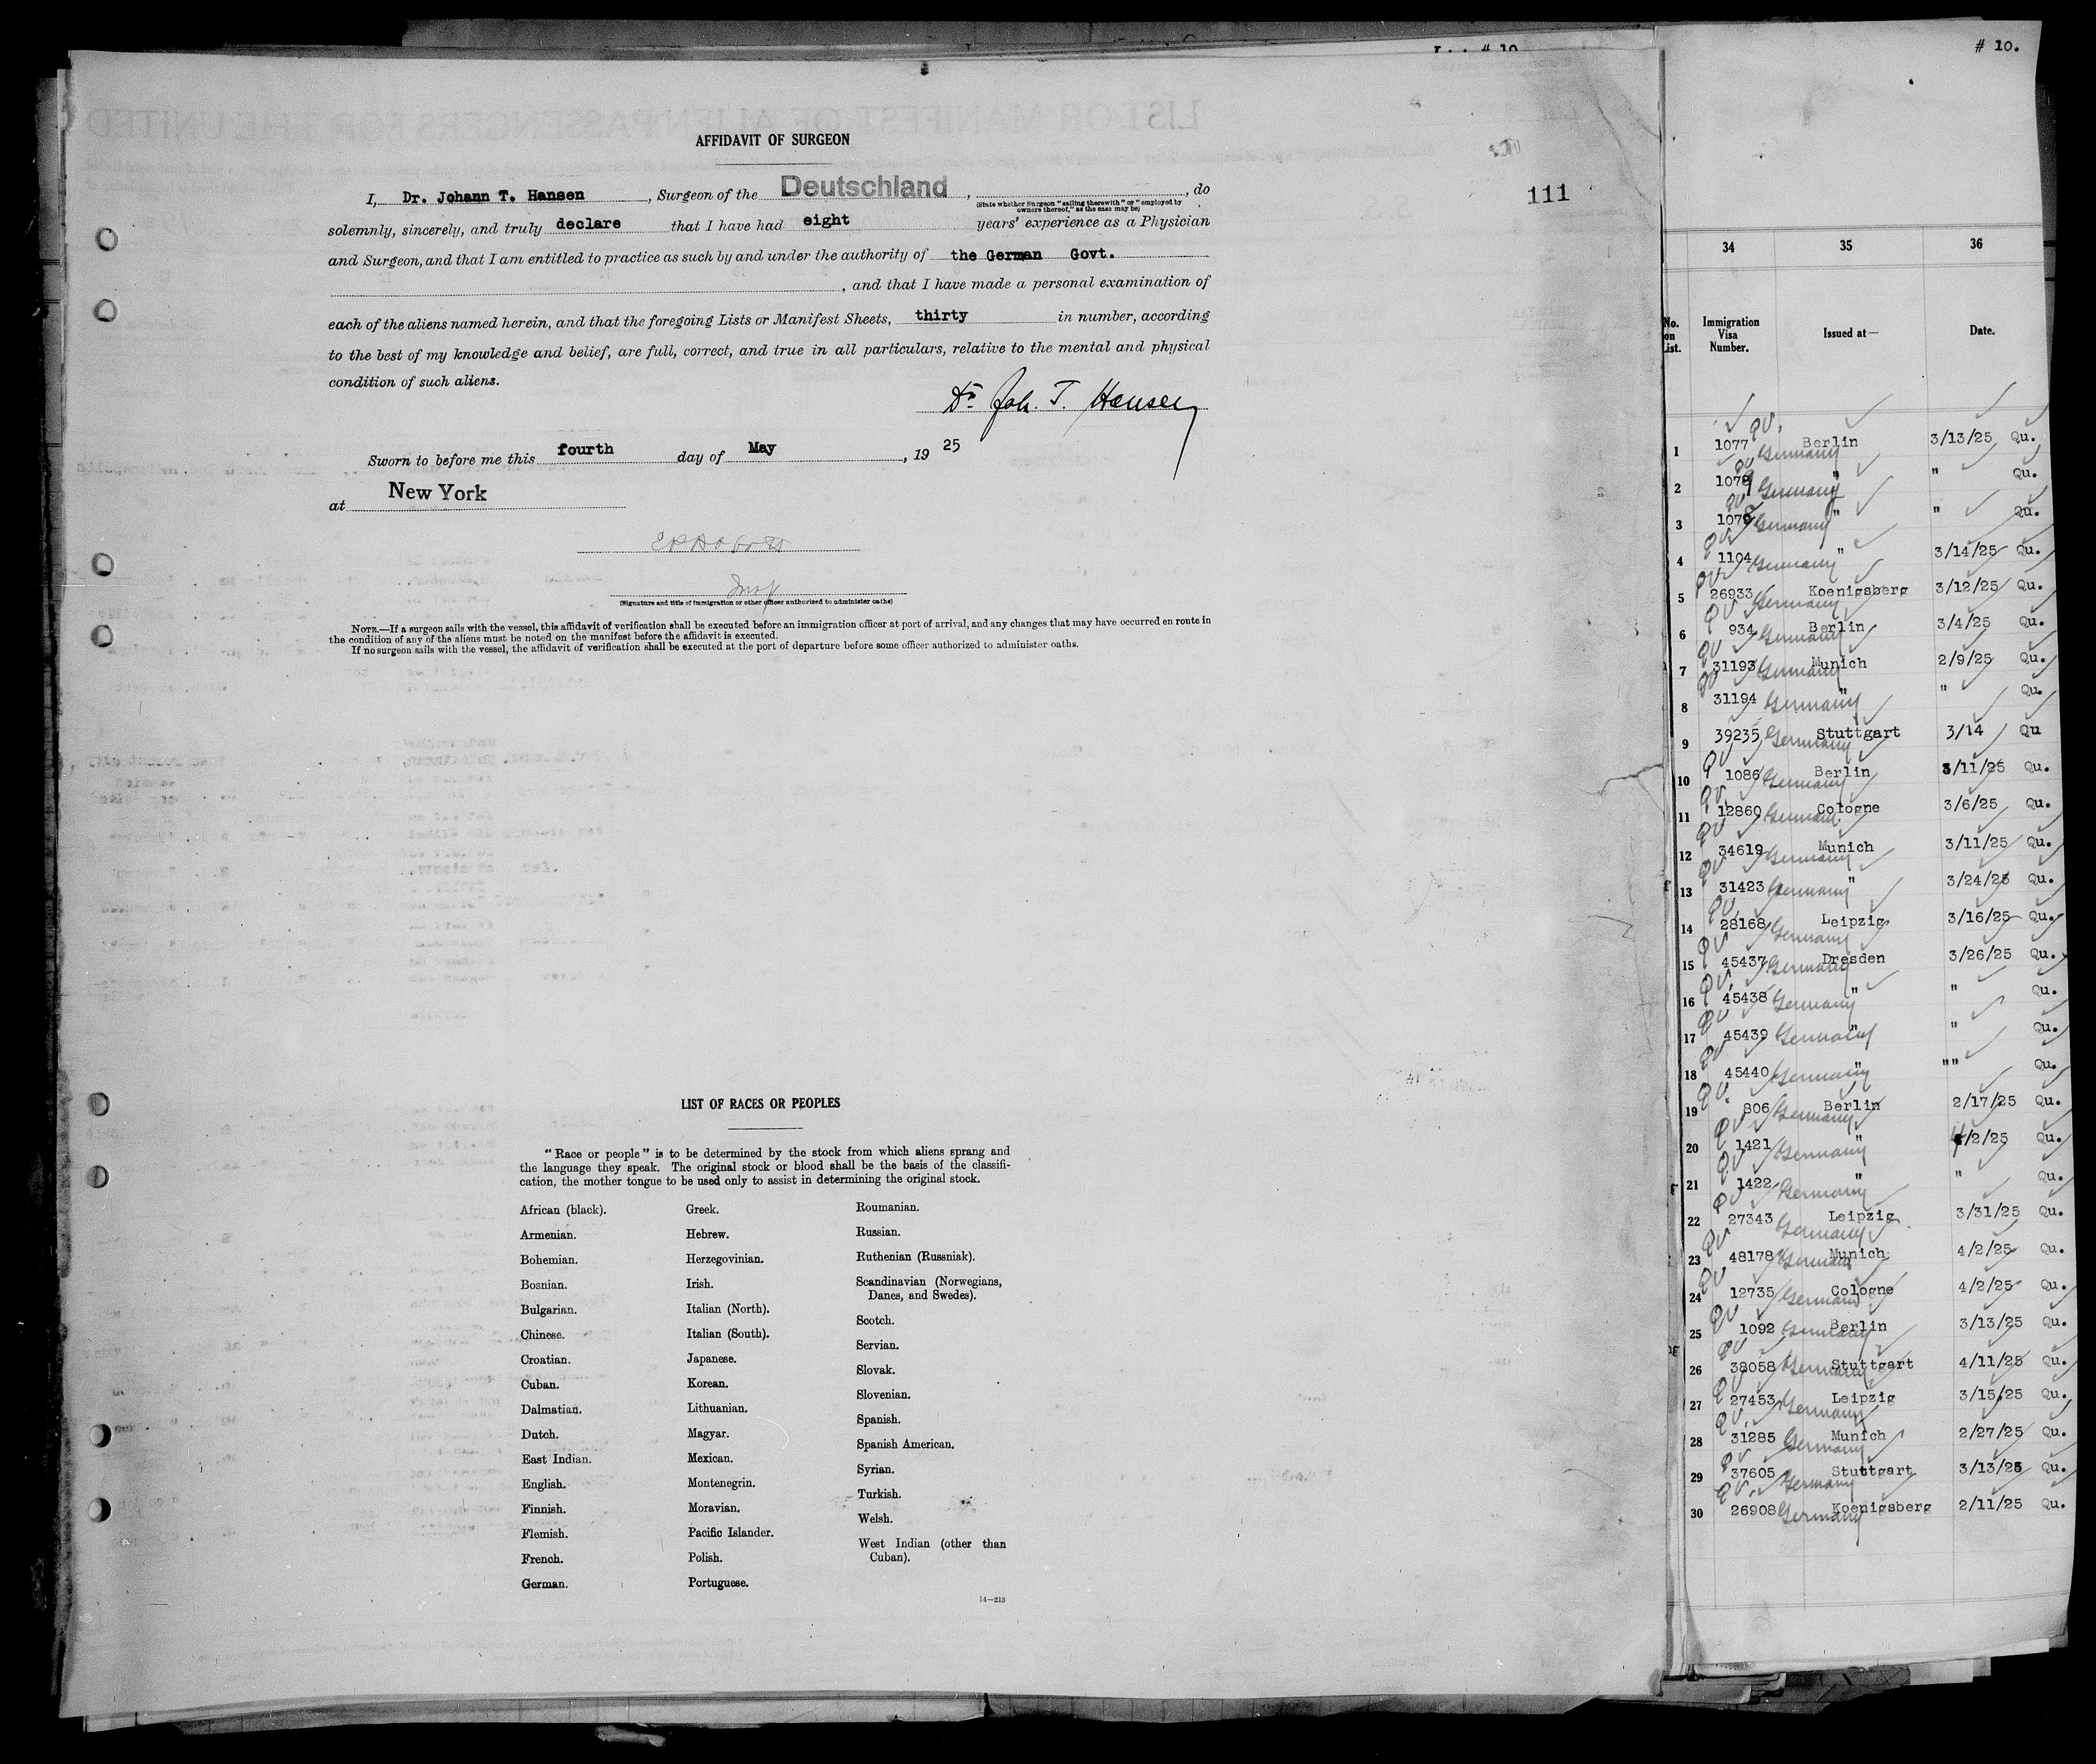 # 10.
AFFIDAVIT OF SURGEON
I, Dr. Johann T. Hansen , Surgeon of the Deutschland , , do
(State whether Surgeon "sailing therewith" or "employed by
owners thereof," as the case may be)
111
solemnly, sincerely, and truly declare that I have had eight years' experience as a Physician
and Surgeon, and that I am entitled to practice as such by and under the authority of the German Govt.
, and that I have made a personal examination of
each of the aliens named herein, and that the foregoing Lists or Manifest Sheets, thirty in number, according
to the best of my knowledge and belief, are full, correct, and true in all particulars, relative to the mental and physical
condition of such aliens.
Dr. Joh. T. Hansen
Sworn to before me this fourth day of May , 19 25
at New York
Insp
(Signature and title of immigration or other officer authorized to administer oaths)
NOTE.—If a surgeon sails with the vessel, this affidavit of verification shall be executed before an immigration officer at port of arrival, and any changes that may have occurred en route in
the condition of any of the aliens must be noted on the manifest before the affidavit is executed.
If no surgeon sails with the vessel, the affidavit of verification shall be executed at the port of departure before some officer authorized to administer oaths.
LIST OF RACES OR PEOPLES
"Race or people" is to be determined by the stock from which aliens sprang and
the language they speak. The original stock or blood shall be the basis of the classifi-
cation, the mother tongue to be used only to assist in determining the original stock.
African (black).
Armenian.
Bohemian.
Bosnian.
Bulgarian.
Chinese.
Croatian.
Cuban.
Dalmatian.
Dutch.
East Indian.
English.
Finnish.
Flemish.
French.
German.
Greek.
Hebrew.
Herzegovinian.
Irish.
Italian (North).
Italian (South).
Japanese.
Korean.
Lithuanian.
Magyar.
Mexican.
Montenegrin.
Moravian.
Pacific Islander.
Polish.
Portuguese.
Roumanian.
Russian.
Ruthenian (Russniak).
Scandinavian (Norwegians,
Danes, and Swedes).
Scotch.
Servian.
Slovak.
Slovenian.
Spanish.
Spanish American.
Syrian.
Turkish.
Welsh.
West Indian (other than
Cuban).
14—213
34 35 36
No. on List. Immigration Visa Number. Issued at— Date.
1 1077 QV. Germany Berlin 3/13/25 Qu.
2 1078 QV Germany " " Qu.
3 1079 QV Germany " " Qu.
4 1104 QV Germany " 3/14/25 Qu.
5 26933 QV Germany Koenigsberg 3/12/25 Qu.
6 934 QV Germany Berlin 3/4/25 Qu.
7 31193 QV Germany Munich 2/9/25 Qu.
8 31194 QV Germany " " Qu.
9 39235 Germany Stuttgart 3/14 Qu
10 1086 QV Germany Berlin 3/11/25 Qu.
11 12860 QV Germany Cologne 3/6/25 Qu.
12 34619 QV Germany Munich 3/11/25 Qu.
13 31423 QV Germany " 3/24/25 Qu.
14 28168 QV Germany Leipzig 3/16/25 Qu.
15 45437 QV Germany Dresden 3/26/25 Qu.
16 45438 QV Germany " " Qu.
17 45439 QV Germany " " Qu.
18 45440 QV Germany " "" Qu.
19 806 QV Germany Berlin 2/17/25 Qu.
20 1421 QV Germany " 4/2/25 Qu.
21 1422 QV Germany " " Qu.
22 27343 QV Germany Leipzig 3/31/25 Qu.
23 48178 QV Germany Munich 4/2/25 Qu.
24 12735 QV Germany Cologne 4/2/25 Qu.
25 1092 QV Germany Berlin 3/13/25 Qu.
26 38058 QV Germany Stuttgart 4/11/25 Qu.
27 27453 QV Germany Leipzig 3/15/25 Qu.
28 31285 QV Germany Munich 2/27/25 Qu.
29 37605 QV Germany Stuttgart 3/13/25 Qu.
30 26908 QV Germany Koenigsberg 2/11/25 Qu.